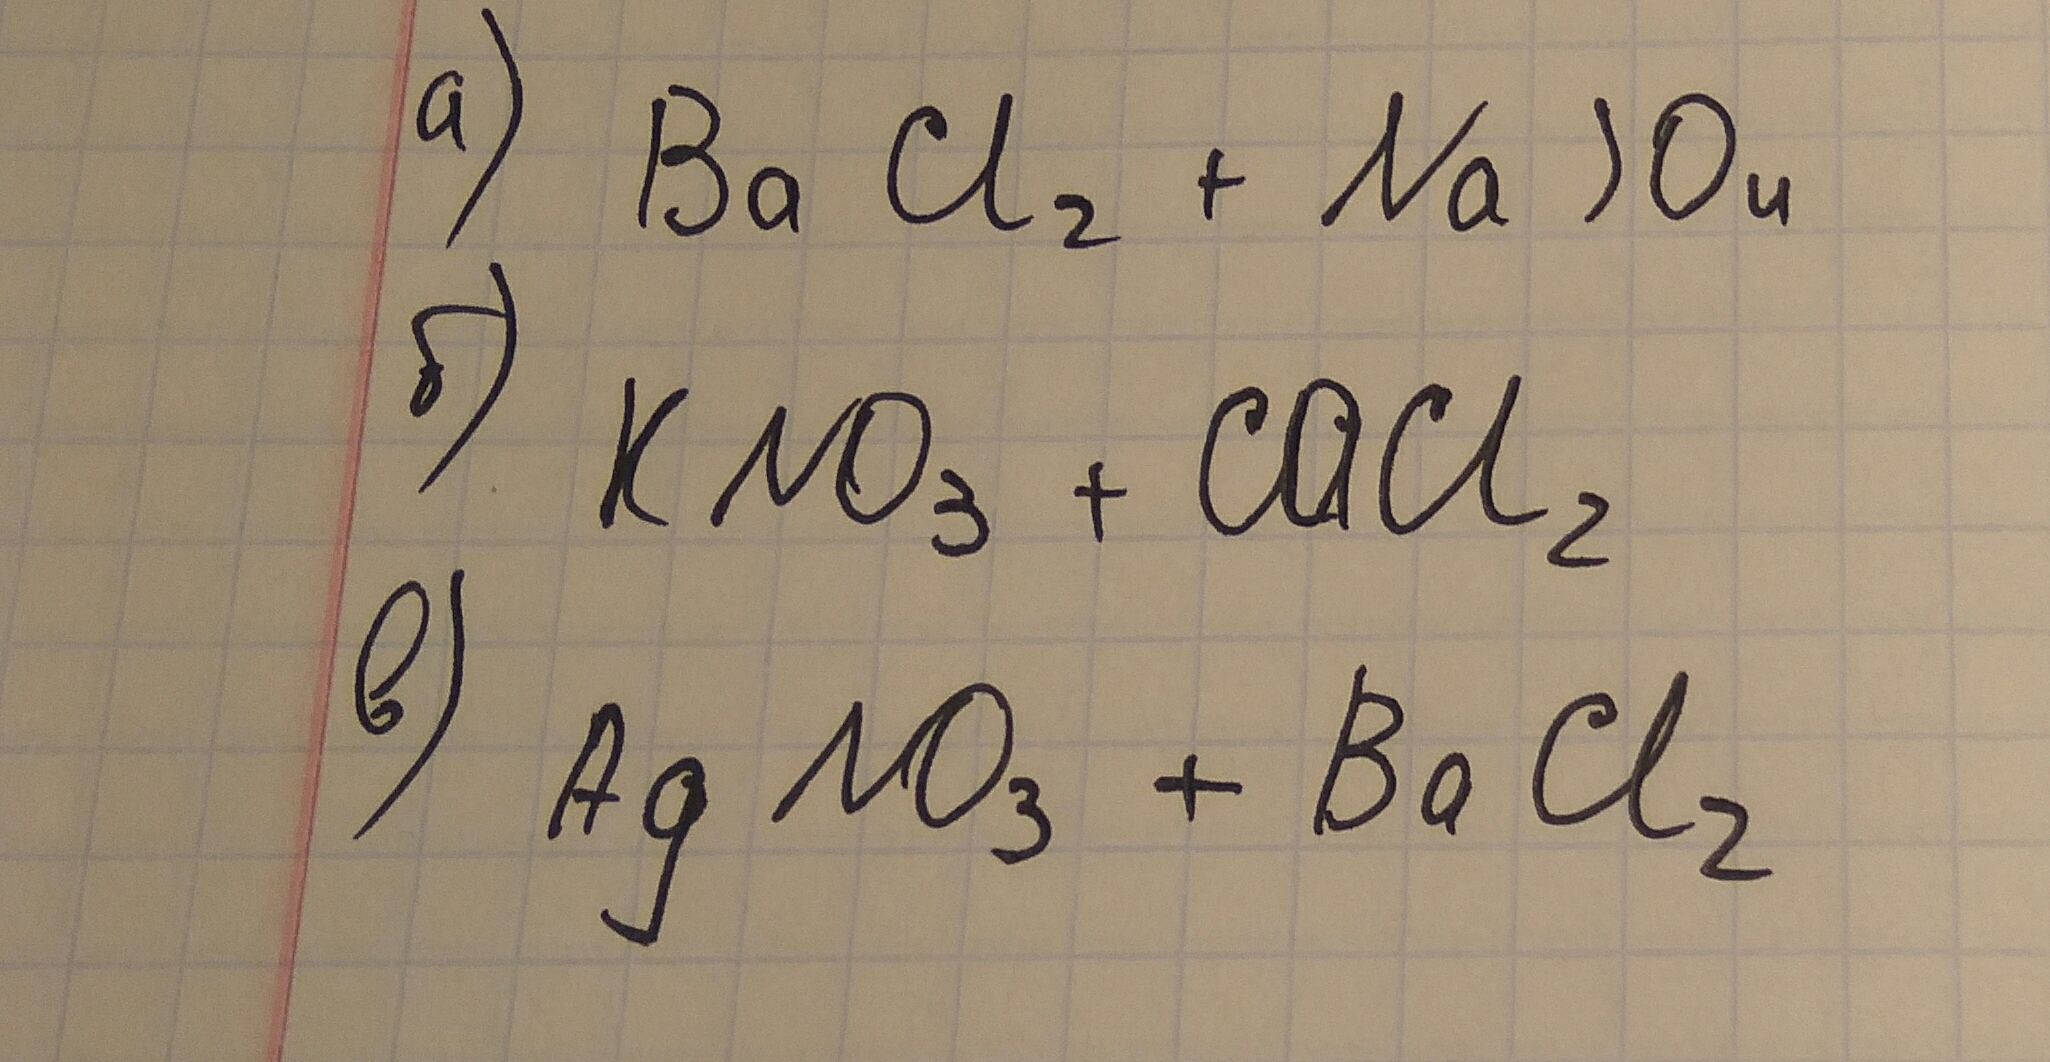 а) BaCl₂ + NaSO₄
б) KNO₃ + CaCl₂
в) AgNO₃ + BaCl₂